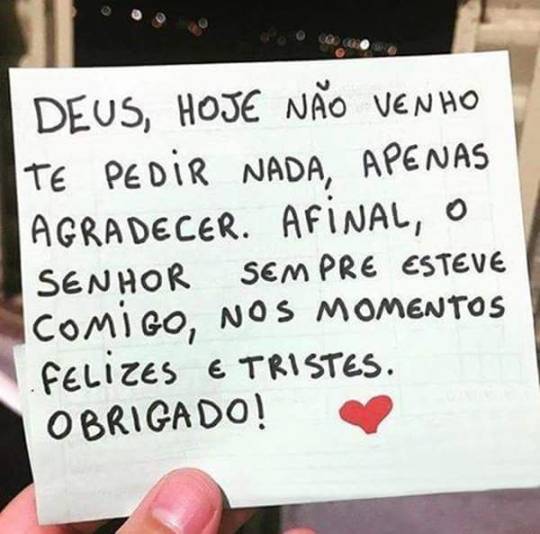 DEUS, HOJE NÃO VENHO
TE PEDIR NADA, APENAS
AGRADECER. AFINAL, O
SENHOR SEMPRE ESTEVE
COMIGO, NOS MOMENTOS
FELIZES E TRISTES.
OBRIGADO!